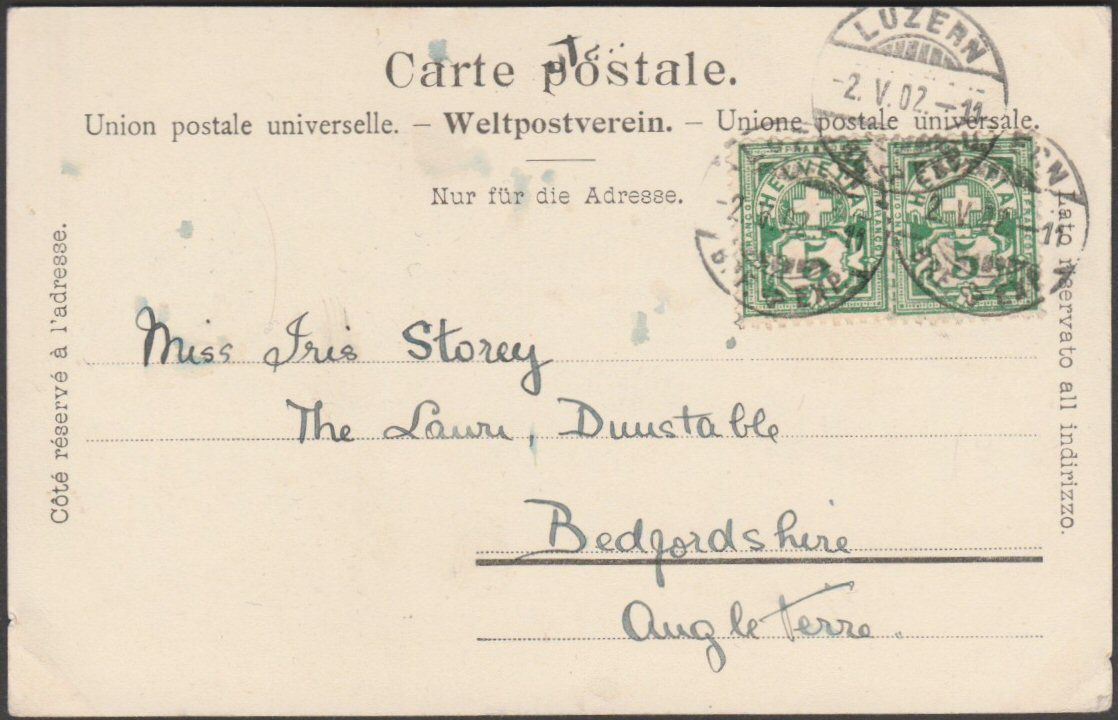 Carte postale.
Union postale universelle. – Weltpostverein. – Unione postale universale.
Nur für die Adresse.
Côté réservé à l'adresse.
LUZERN
-2.V.02.-11
HELVETIA
5
HELVETIA
5
Miss Iris Storey
The Lawn, Dunstable
Bedfordshire
Angleterre.
Lato riservato all indirizzo.